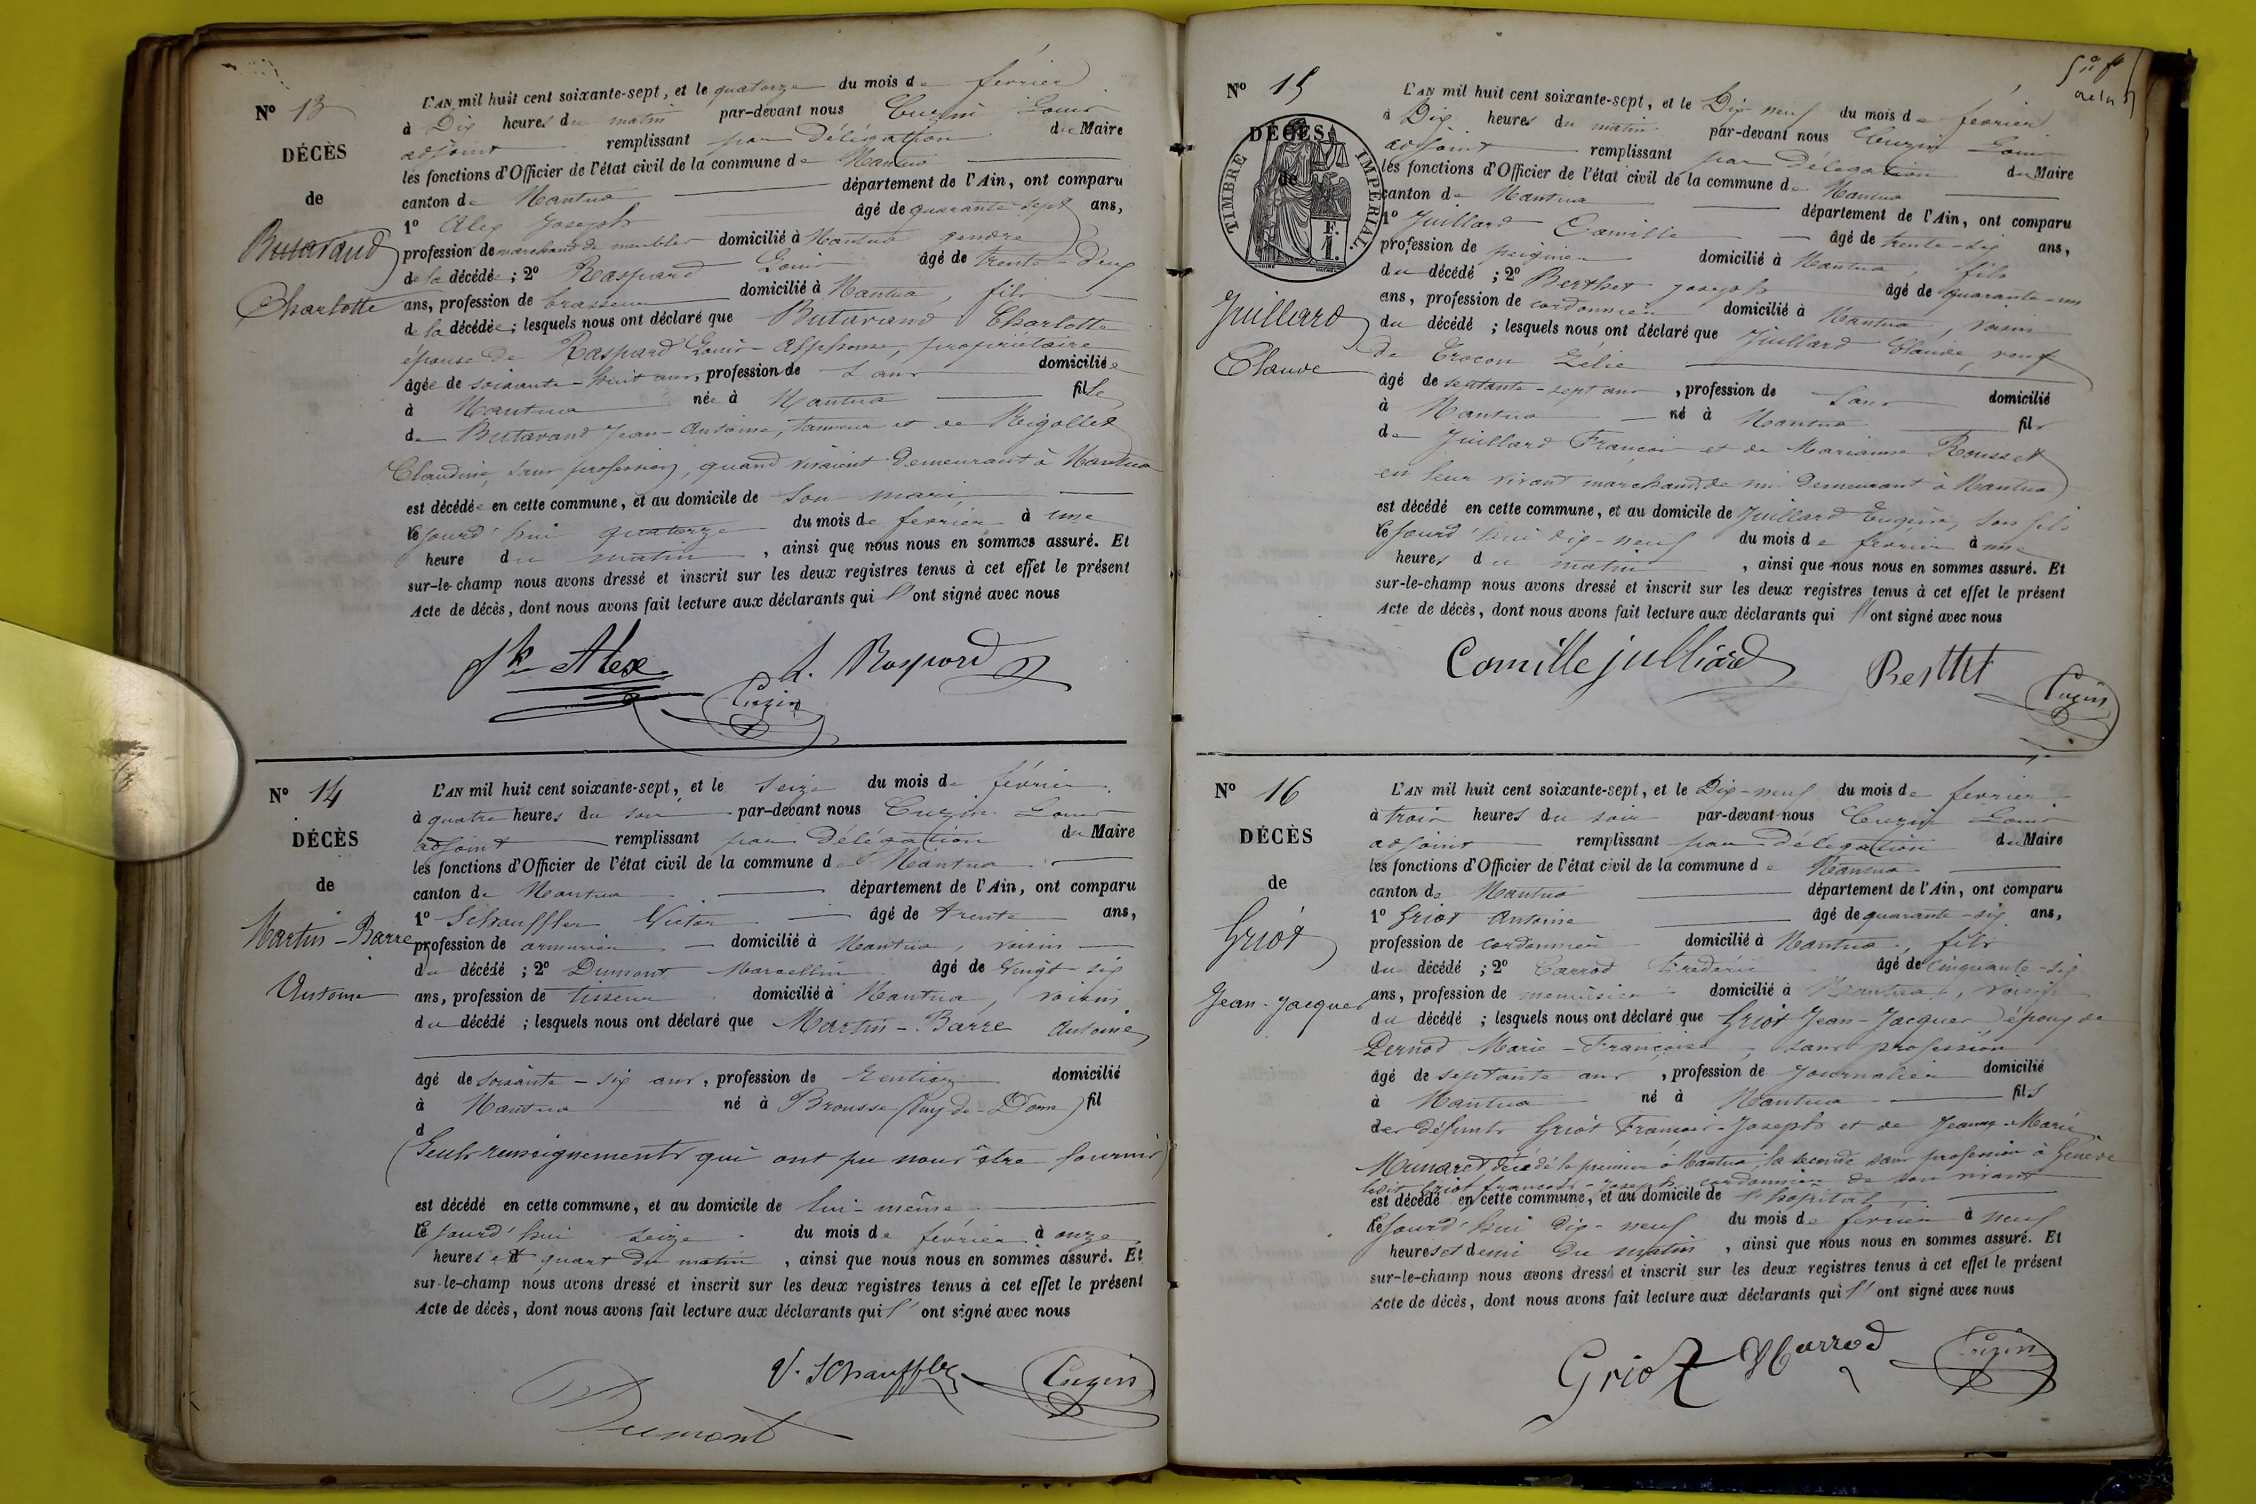 N° 13
DÉCÈS
de
Butavand
Charlotte
L'AN mil huit cent soixante-sept, et le quatorze du mois de février
à Dix heures du matin par-devant nous Cuzin Louis
adjoint remplissant par Délégation du Maire
les fonctions d'Officier de l'état civil de la commune de Nantua
canton de Nantua département de l'Ain, ont comparu
1° Alex Joseph âgé de quarante-sept ans,
profession de marchand de meubles domicilié à Nantua gendre
de la décédée ; 2° Raspard Louis âgé de trente-deux
ans, profession de brasseur domicilié à Nantua, fils
de la décédée ; lesquels nous ont déclaré que Butavand Charlotte
épouse de Raspard Louis-Alphonse, propriétaire
âgée de soixante-huit ans, profession de sans domiciliée
à Nantua née à Nantua fille
de Butavand Jean-Antoine, tanneur et de Rigollet
Claudine, sans profession, quand vivaient demeurant à Nantua
est décédée en cette commune, et au domicile de son mari
cejourd'hui quatorze du mois de février à une
heure du matin, ainsi que nous nous en sommes assuré. Et
sur-le-champ nous avons dressé et inscrit sur les deux registres tenus à cet effet le présent
Acte de décès, dont nous avons fait lecture aux déclarants qui l'ont signé avec nous
Jh Alex L. Raspard
Cuzin
N° 14
DÉCÈS
de
Martin-Barre
Antoine
L'AN mil huit cent soixante-sept, et le seize du mois de février
à quatre heures du soir par-devant nous Cuzin Louis
adjoint remplissant par Délégation du Maire
les fonctions d'Officier de l'état civil de la commune de Nantua
canton de Nantua département de l'Ain, ont comparu
1° Schauffler Victor âgé de trente ans,
profession de armurier domicilié à Nantua, voisin
du décédé ; 2° Dumont Marcellin âgé de vingt-six
ans, profession de tisseur domicilié à Nantua, voisin
du décédé ; lesquels nous ont déclaré que Martin-Barre Antoine
âgé de soixante-six ans, profession de rentier domicilié
à Nantua né à Brousse (Puy-de-Dôme) fil
d
(Seuls renseignements qui ont pu nous être fournis)
est décédé en cette commune, et au domicile de lui-même
cejourd'hui seize du mois de février à onze
heures et quart du matin, ainsi que nous nous en sommes assuré. Et
sur-le-champ nous avons dressé et inscrit sur les deux registres tenus à cet effet le présent
Acte de décès, dont nous avons fait lecture aux déclarants qui l'ont signé avec nous
V. Schauffler Cuzin
Dumont
N° 15
DÉCÈS
de
TIMBRE IMPÉRIAL
1 F.
Juillard
Claude
L'AN mil huit cent soixante-sept, et le Dix neuf du mois de février
à Dix heures du matin par-devant nous Cuzin Louis
adjoint remplissant par Délégation du Maire
les fonctions d'Officier de l'état civil de la commune de Nantua
canton de Nantua département de l'Ain, ont comparu
1° Juillard Camille âgé de trente-six ans,
profession de peignier domicilié à Nantua, fils
du décédé ; 2° Berthet Joseph âgé de quarante-un
ans, profession de cordonnier domicilié à Nantua, voisin
du décédé ; lesquels nous ont déclaré que Juillard Claude, veuf
de Crocon Zélie
âgé de septante-sept ans, profession de sans domicilié
à Nantua né à Nantua fils
de Juillard François et de Marianne Rousset
en leur vivant marchands de demeurant à Nantua
est décédé en cette commune, et au domicile de Juillard Eugène, son fils
cejourd'hui dix-neuf du mois de février à une
heures du matin, ainsi que nous nous en sommes assuré. Et
sur-le-champ nous avons dressé et inscrit sur les deux registres tenus à cet effet le présent
Acte de décès, dont nous avons fait lecture aux déclarants qui l'ont signé avec nous
Camille julliard Berthet
Cuzin
N° 16
DÉCÈS
de
Griot
Jean-Jacques
L'AN mil huit cent soixante-sept, et le Dix-neuf du mois de février
à trois heures du soir par-devant nous Cuzin Louis
adjoint remplissant par délégation du Maire
les fonctions d'Officier de l'état civil de la commune de Nantua
canton de Nantua département de l'Ain, ont comparu
1° Griot Antoine âgé de quarante-six ans,
profession de cordonnier domicilié à Nantua, fils
du décédé ; 2° Carrod Frédéric âgé de cinquante-six
ans, profession de menuisier domicilié à Nantua, voisin
du décédé ; lesquels nous ont déclaré que Griot Jean-Jacques, époux de
Pernod Marie-Françoise, sans profession
âgé de septante ans, profession de journalier domicilié
à Nantua né à Nantua fils
des défunts Griot François-Joseph et de Jeanne-Marie
Munaret, décédé le premier à Nantua, la seconde sans profession à Genève
ledit Griot françois-joseph cordonnier de son vivant
est décédé en cette commune, et au domicile de l'hopital
cejourd'hui dix-neuf du mois de février à neuf
heures et demi du matin, ainsi que nous nous en sommes assuré. Et
sur-le-champ nous avons dressé et inscrit sur les deux registres tenus à cet effet le présent
Acte de décès, dont nous avons fait lecture aux déclarants qui l'ont signé avec nous
Griot Carrod Cuzin